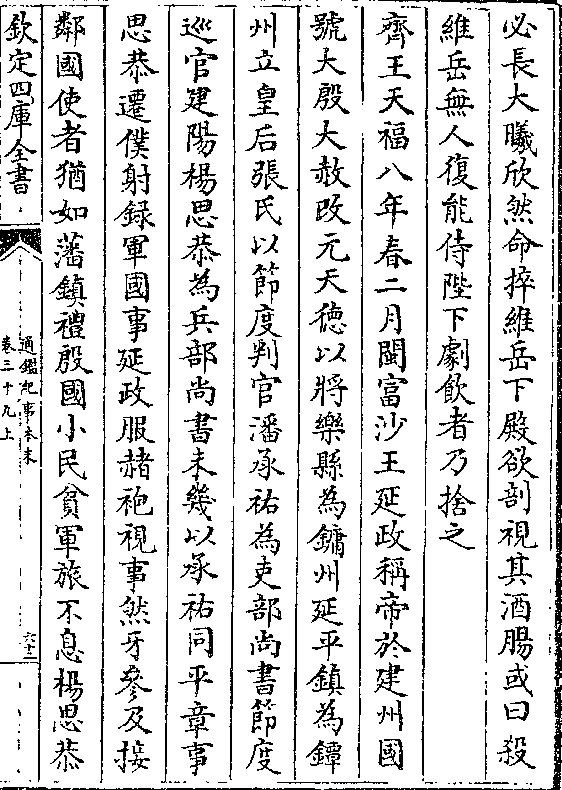 必長大曦欣然命捽維岳下殿欲剖視其酒腸或曰殺
維岳無人復能侍陛下劇飲者乃捨之
齊王天福八年春二月閩富沙王延政稱帝於建州國
號大殷大赦改元天徳以將樂縣為鏞州延平鎮為鐔
州立皇后張氏以節度判官潘承祐為吏部尚書節度
巡官建陽楊思恭為兵部尚書未幾以承祐同平章事
思恭遷僕射録軍國事延政服赭袍視事然牙參及接
鄰國使者猶如藩鎮禮殷國小民貧軍旅不息楊思恭
欽定四庫全書
通鑑紀事本末
卷三十九上
六十二